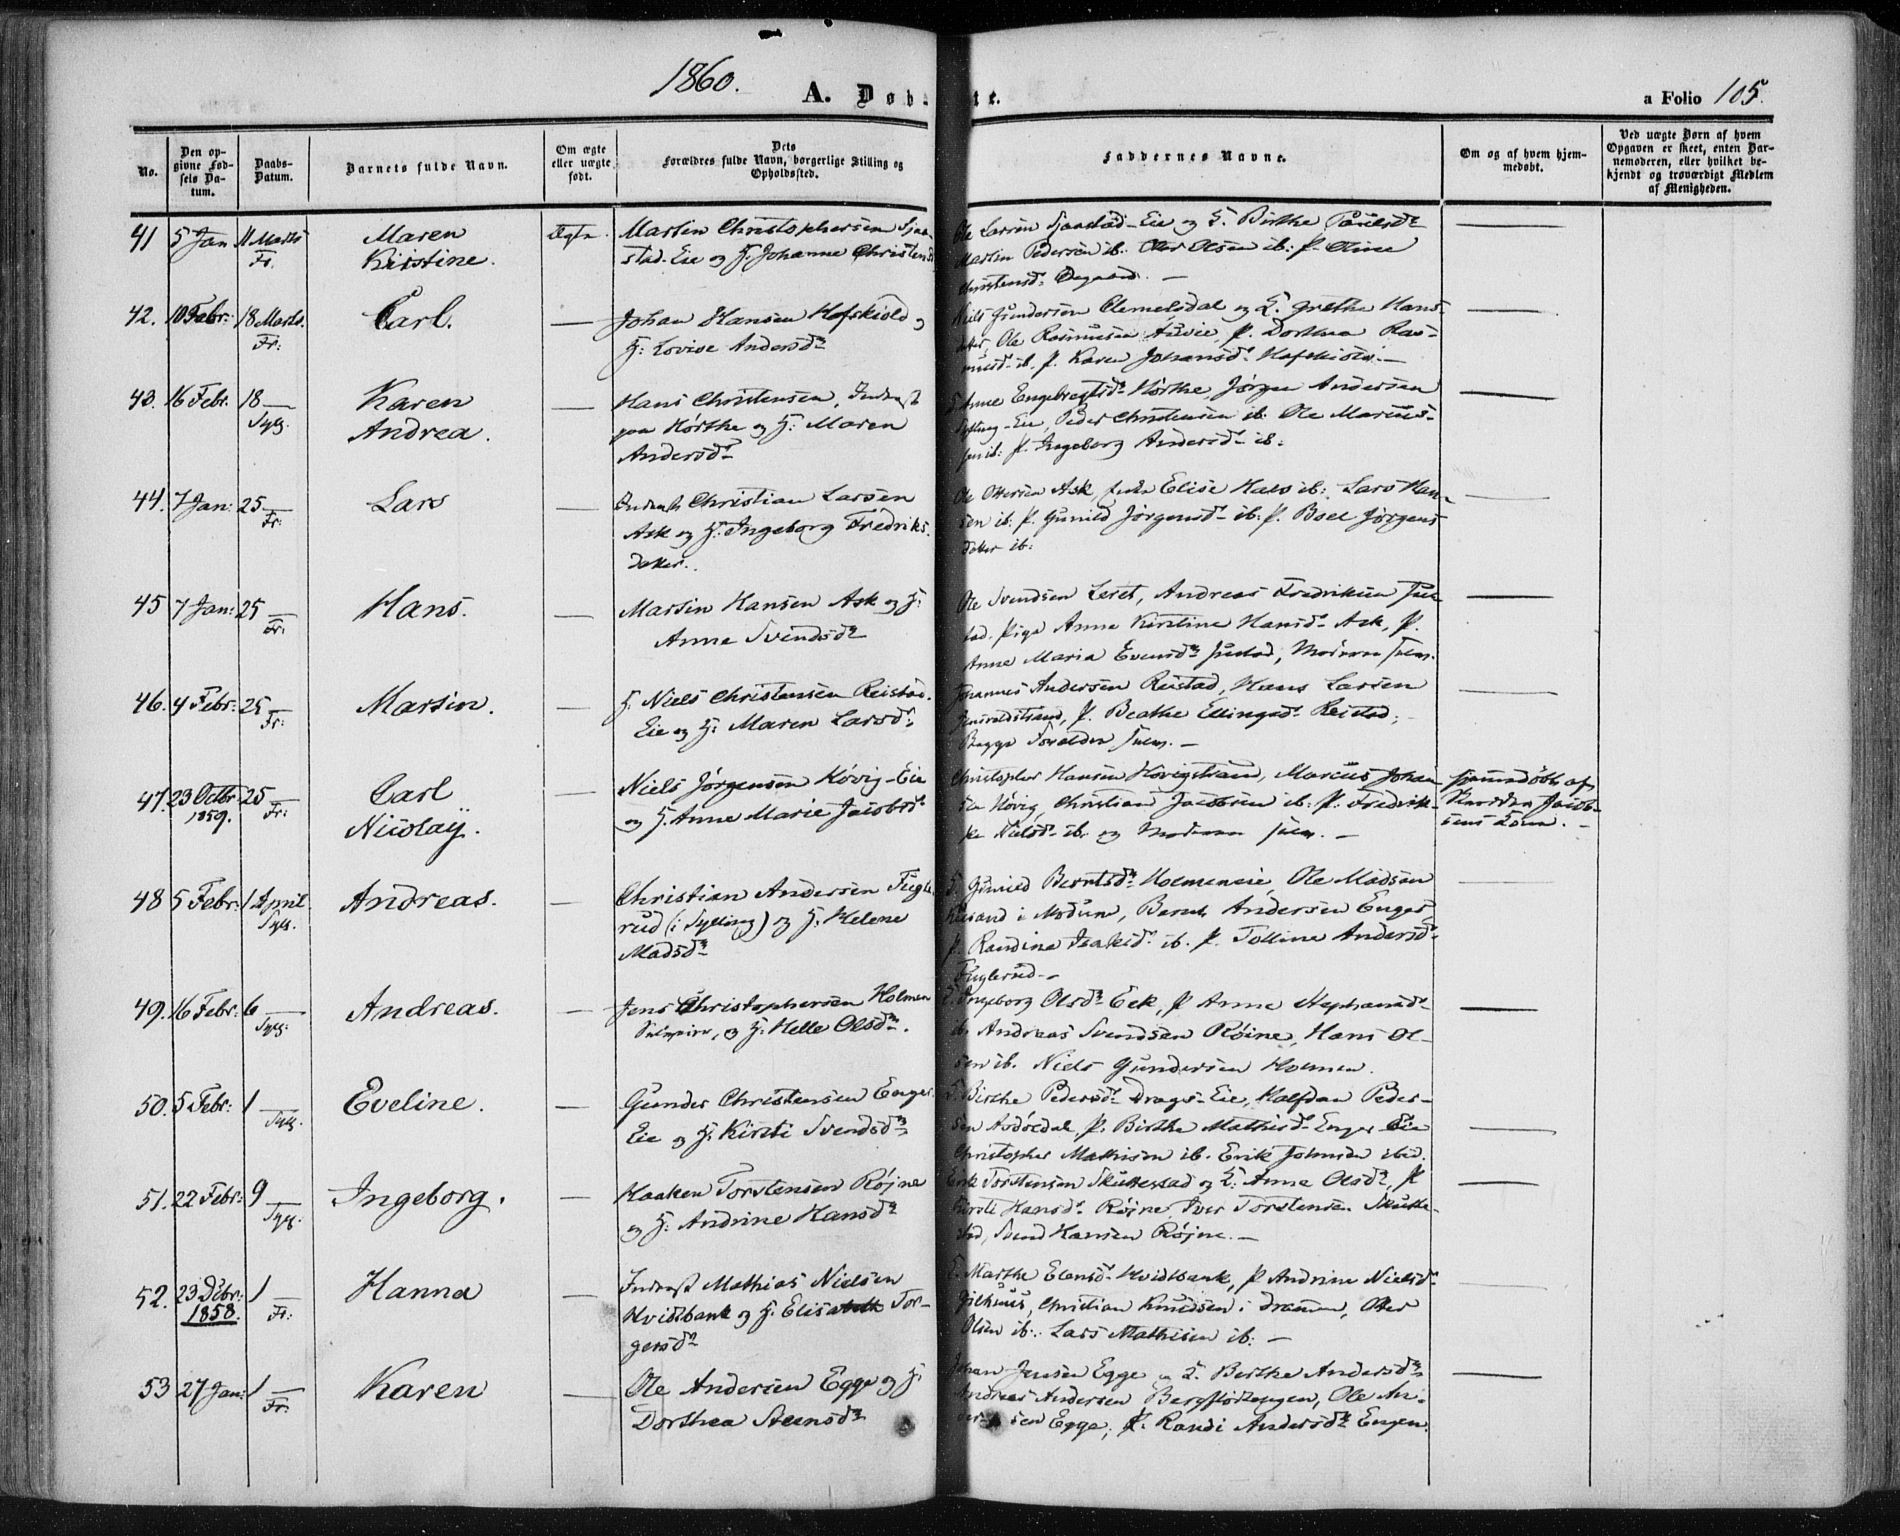 1860.
A. Døb-te.
a Folio 105.
No.
Den opgivne Fødsels Datum.
Daabs-Datum.
Barnets fulde Navn.
Om ægte eller uægte født.
Dets Forældres fulde Navn, borgerlige Stilling og Opholdssted.
Faddernes Navne.
Om og af hvem hjemmedøbt.
Ved uægte Børn af hvem Opgaven er skeet, enten Barnemoderen, eller hvilket bekjendt og troværdigt Medlem af Menigheden.
41 5 Jan 11 Marts Fr. Maren Kirstine. Ægte.
Martin Christophersen
stad Eie og H. Johanne Christensd
Ole Larsen Sjaastad-Eie og H. Birthe Paulsdr
Martin Pedersen ib. Olsen ib: P. Oline
Christensdr Øegaard. —
42. 10 Febr: 18 Marts. Fr: Carl. —
Johan Hansen Hafskiold og
H: Lovise Andersdr
Niels Gundersen Clemetsdal og H. Grethe Hans-
datter, Ole Rasmusen P. Dorthea Ras-
musdr ib. P. Karen Johansdr Hafskiold. —
43. 16 Febr. 18 — Sylg. Karen Andrea. —
Hans Christensen, Inderst
paa Hørthe og H: Maren
Andersdr
Anne Engebregtsdr Hørthe, Jørgen Andersen
Sylling-Eie, Peder Christensen ib. Ole Marius-
sen ib: P. Ingeborg Andersdr ib:
44. 7 Jan: 25 — Fr: Lars —
Inderst Christian Larsen
Ask og H: Ingeborg Fredriks-
datter.
Ole Ottersen Ask, Elise ib: Lars Han-
sen ib: P. Gunild Jørgensdr ib: P. Boel Jørgens
datter ib:
45 7 Jan: 25 — Fr: Hans. —
Martin Hansen Ask og H:
Anne Svendsdr
Ole Svendsen Andreas Fredriksen
Pige Anne Kirstine Hansdr Ask, P.
Anne Maria Evensdr Moderen selv.
46. 4 Febr: 25 — Fr: Martin. —
H. Niels Christensen Reistad-
Eie og H: Maren Larsdr
Johannes Andersen Reistad, Hans Larsen
P. Beathe Ellingsdr Reistad;
Begge Forældre selv. —
47. 23 Octbr 1859. 25 — Fr: Carl Nicolay.
Niels Jørgensen Høvig-Eie
og H. Anne Marie Jacobsdr
Christopher Hansen Høvigstrand, Marcus Johan-
sen Høvig, Christian Jacobsen ib: P. Fredrik-
ke Nielsdr ib. og Moderen selv. —
hjemmedøbt af
Jacob-
sens Kone. —
48 5 Febr: 1 April. Sylg. Andreas. —
Christian Andersen Fugle-
rud (i Sylling) og H. Helene
Madsdr
Gunild Berntsdr Holmeneie, Ole Madsen
i Modum, Bernt Andersen Enger,
P. Randine Isaksdr ib. P. Tolline Andersdr
Fuglerud. —
49. 16 Febr: 6 — Sylg: Andreas. —
Jens Christophersen Holmen
og H: Helle Olsdr.
Ingeborg Olsdr Eek, P. Anne Stephansdr
ib. Andreas Svendsen Røine, Hans Ol-
sen ib. Niels Gundersen Holmen.
50. 5 Febr: 1 — Sylg. Eveline. —
Gunder Christensen Enger-
Eie og H: Kirsti Svendsdr
Birthe Pedersdr Drags-Eie, Halfdan Peder-
sen P. Birthe Mathisdr Enger-Eie
Christopher Mathisen ib. Erik Johnsen ibid.
51. 22 Febr: 9 — Sylg. Ingeborg. —
Haaken Torstensen Røjne
og H: Andrine Hansdr
Erik Torstensen Skuttestad og H: Anne Olsdr, P.
Kirsti Hansdr Røjne, Iver Torstensen Skutte-
stad, Svend Hansen Røjne. —
52. 23 Dcbr: 1858. 1 — Fr: Hanna —
Inderst Mathias Nielsen
Hvidsbank og H. Elisabeth Tor-
gersdr
Marthe Hvidsbank, P. Andrine Nielsdr
Gilhuus, Christian Knudsen i Drammen,
Olsen ib: Lars Mathisen ib: —
53 27 Jan: 1 — Fr: Karen —
Ole Andersen Egge og H:
Dorthea Steensdr
Johan Jensen Egge og H. Berthe Andersdr
Andreas Andersen Ole An-
dersen Egge, P. Randi Andersdr Engen.